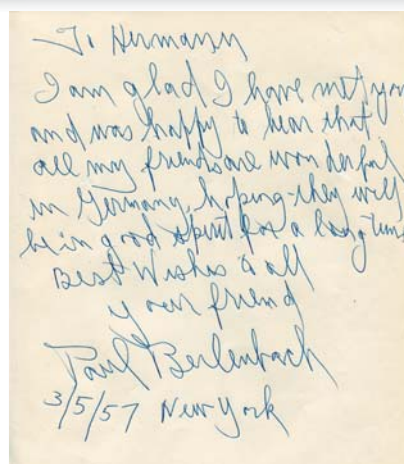 To Hermann
I am glad I have met you
and was happy to hear that
all my friends are wonderful
in Germany, hoping they will
be in good spirit for a long time
Best Wishes to all
your friend
Paul Berlenbach
3/5/57 New York